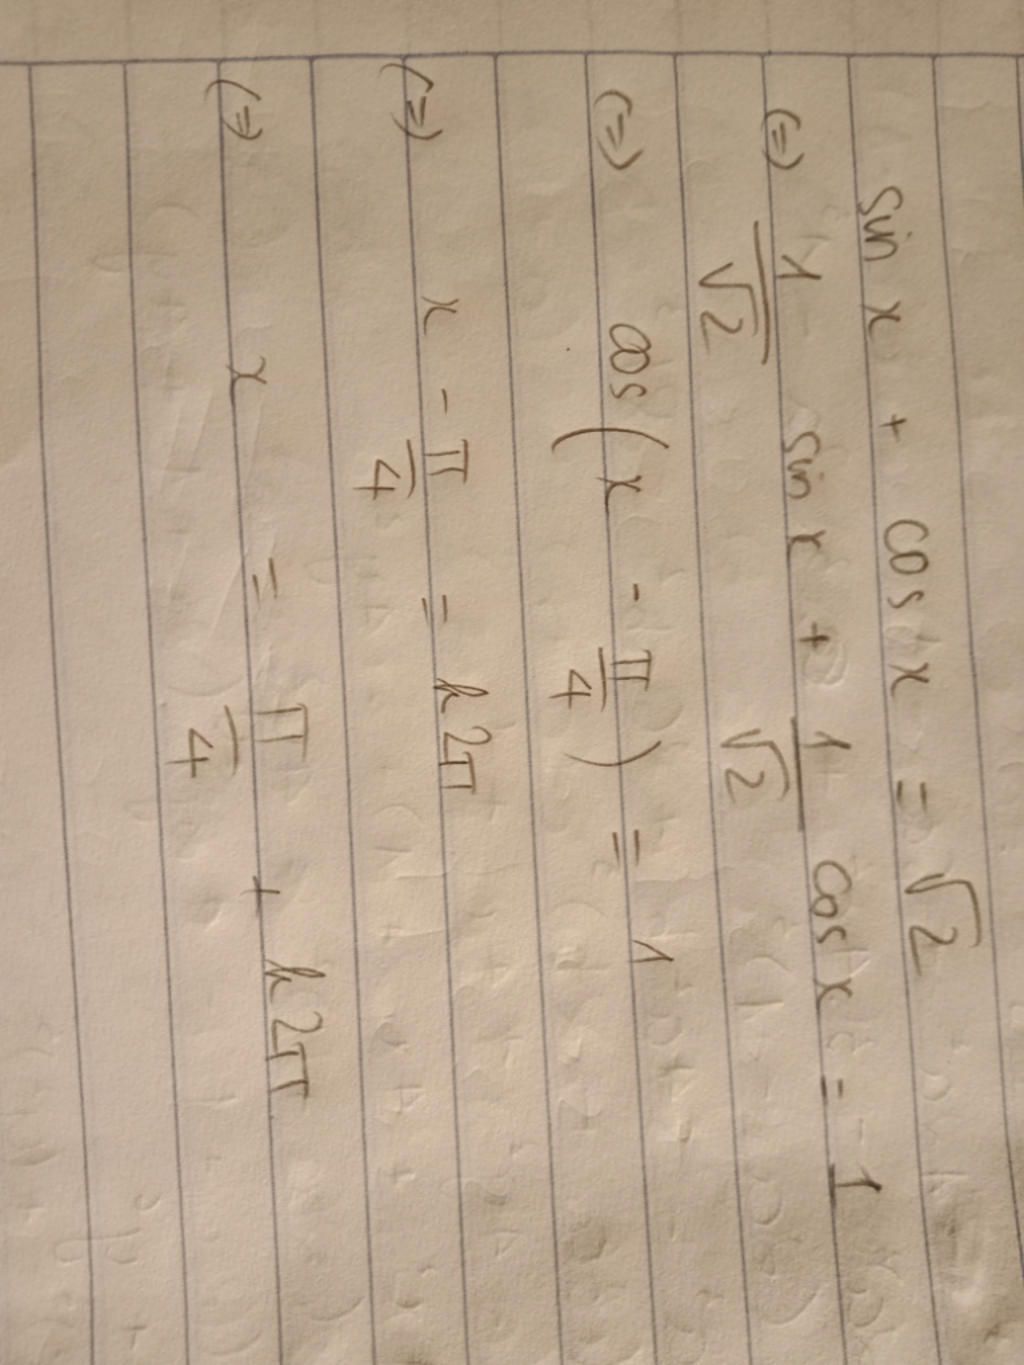 sin x + cos x = √2
(=) 1/√2 sin x + 1/√2 cos x = 1
(=) cos(x - π/4) = 1
(=) x - π/4 = k2π
(=) x = π/4 + k2π